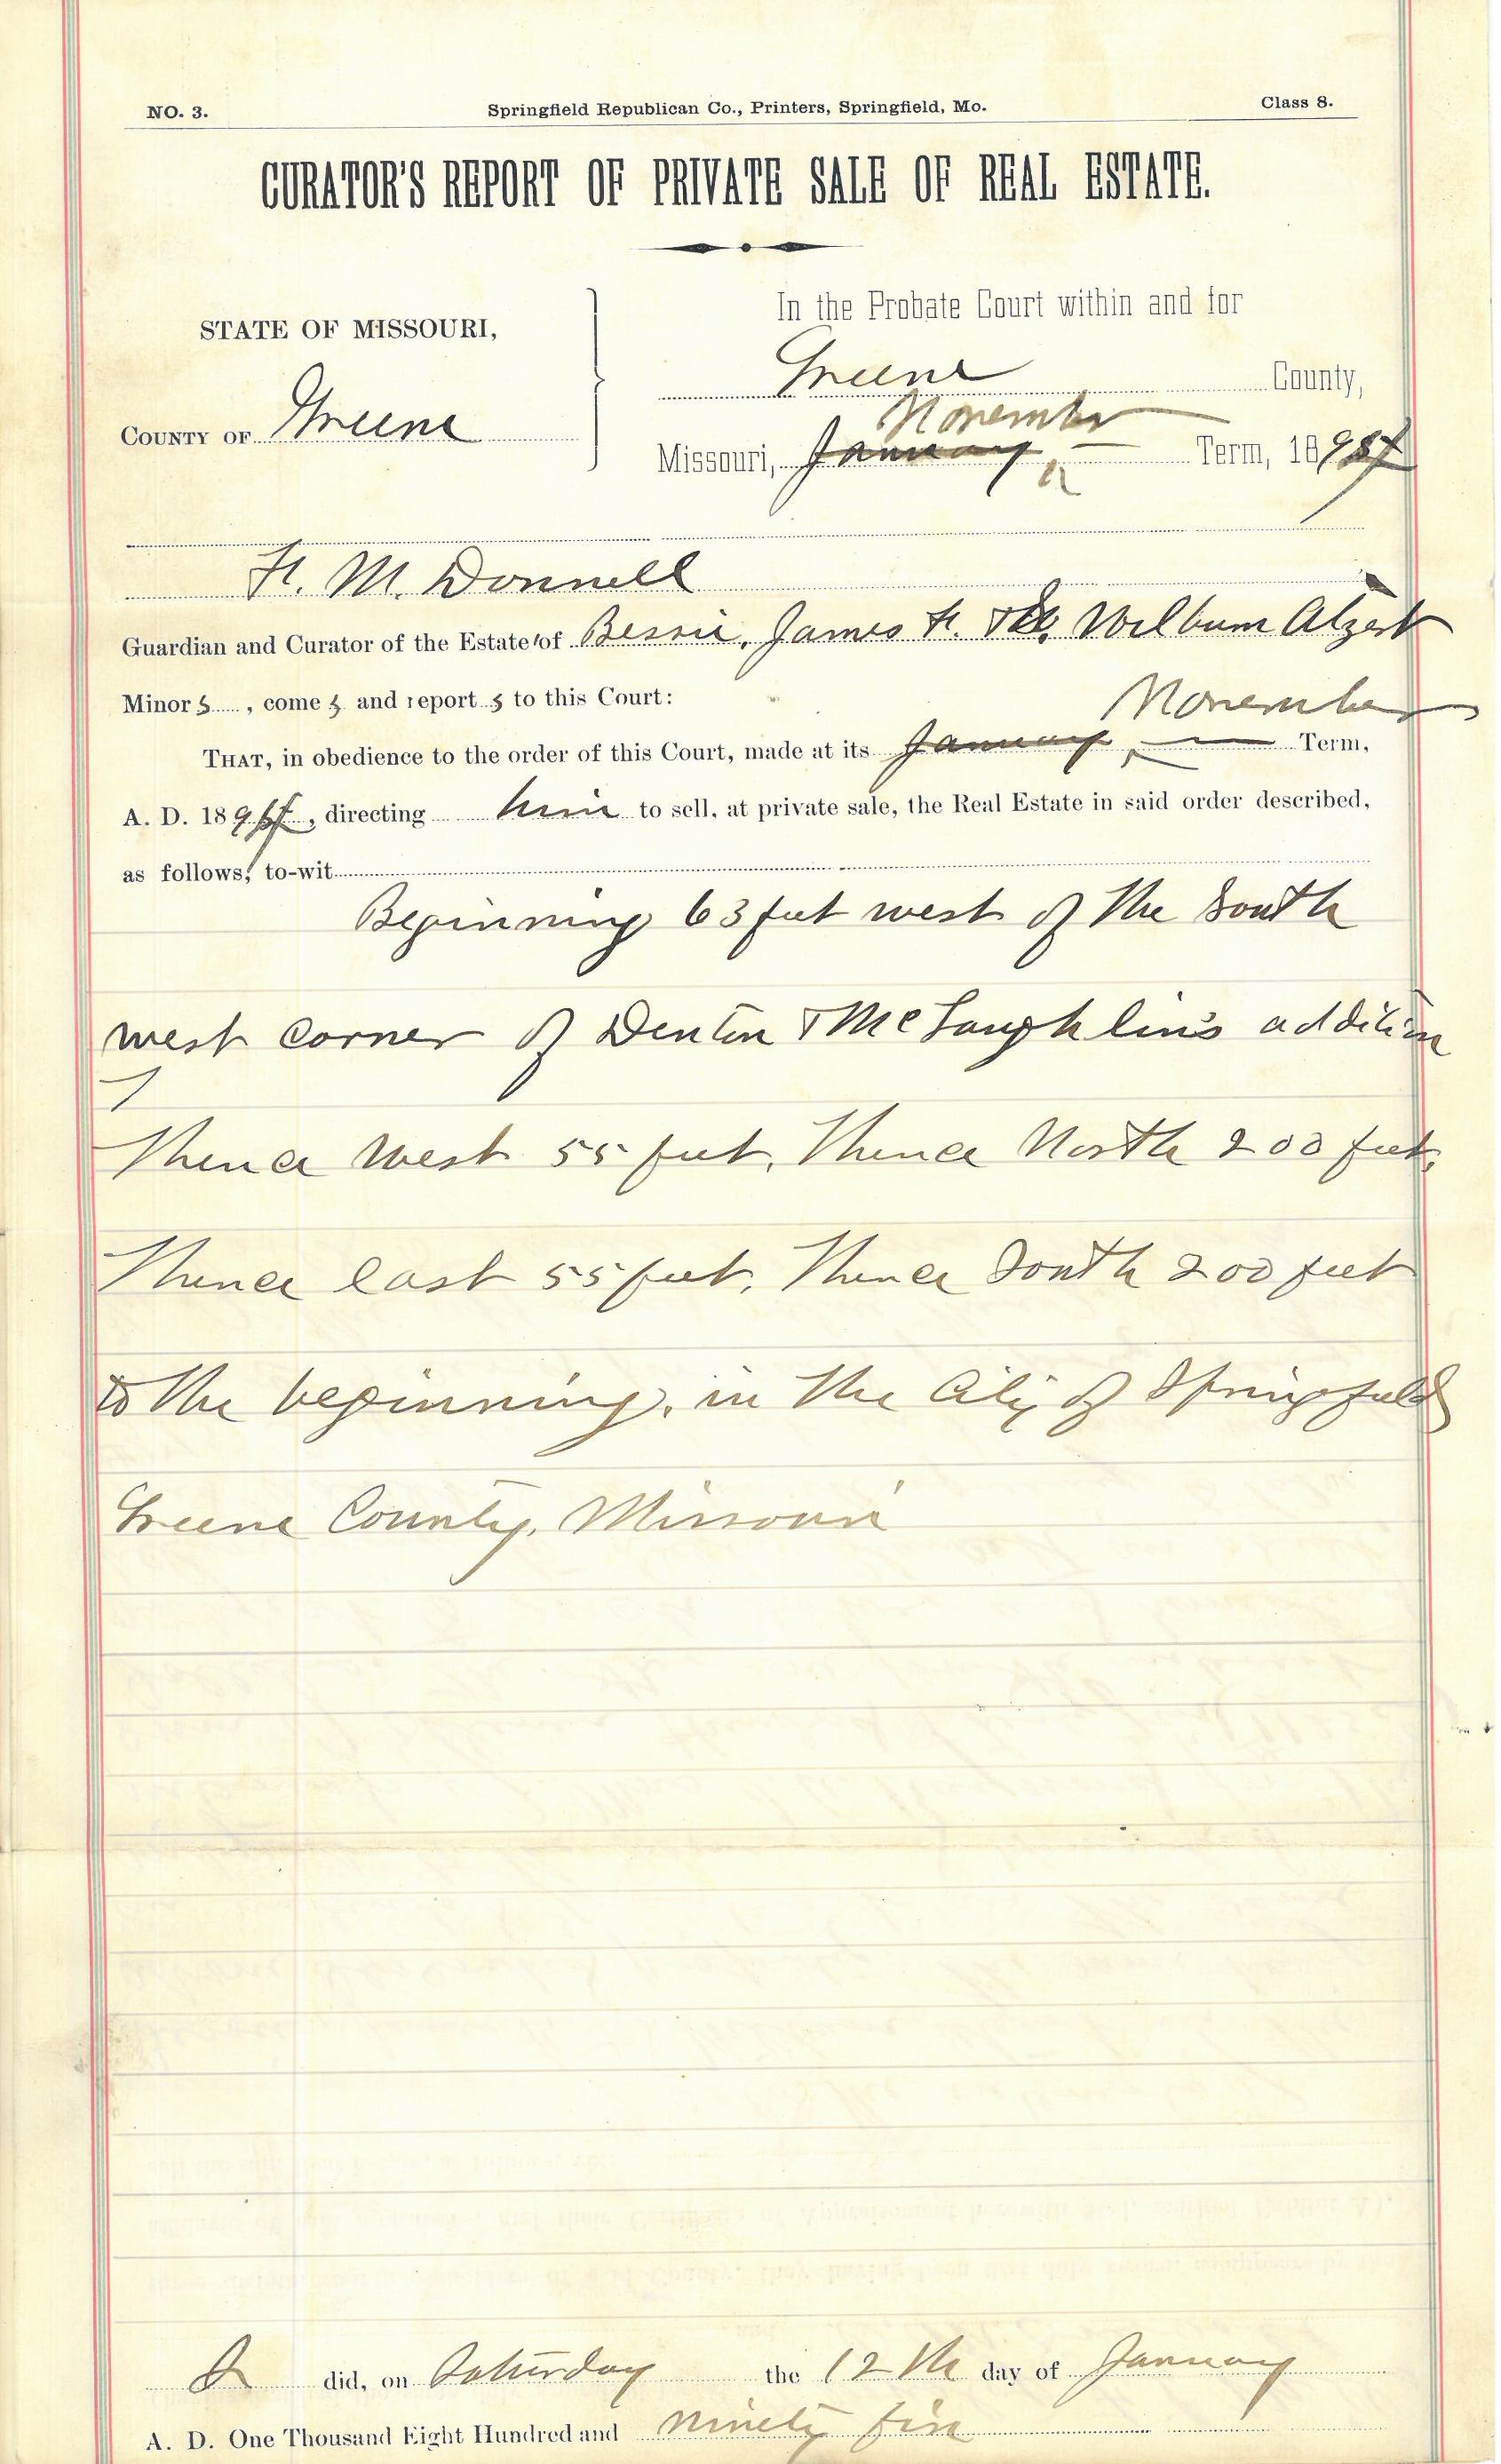 NO. 3. Springfield Republican Co., Printers, Springfield, Mo. Class 8.
CURATOR'S REPORT OF PRIVATE SALE OF REAL ESTATE.
In the Probate Court within and for
STATE OF MISSOURI,
Greene County,
COUNTY OF Greene
November
Missouri, January, Term, 189
H. M. Donnell
Guardian and Curator of the Estate of Bessie, James H. Wilburn Alzert
Minor s , come s and report s to this Court:
November
THAT, in obedience to the order of this Court, made at its January, Term,
A. D. 189 , directing him to sell, at private sale, the Real Estate in said order described,
as follows, to-wit
Beginning 63 feet west of the South
west corner of Denton & McLaughlin's addition
Thence West 55 feet, Thence North 200 feet,
Thence East 55 feet, Thence South 200 feet
to the beginning, in the City of Springfield
Greene County, Missouri
I did, on Saturday the 12th day of January
A. D. One Thousand Eight Hundred and ninety five